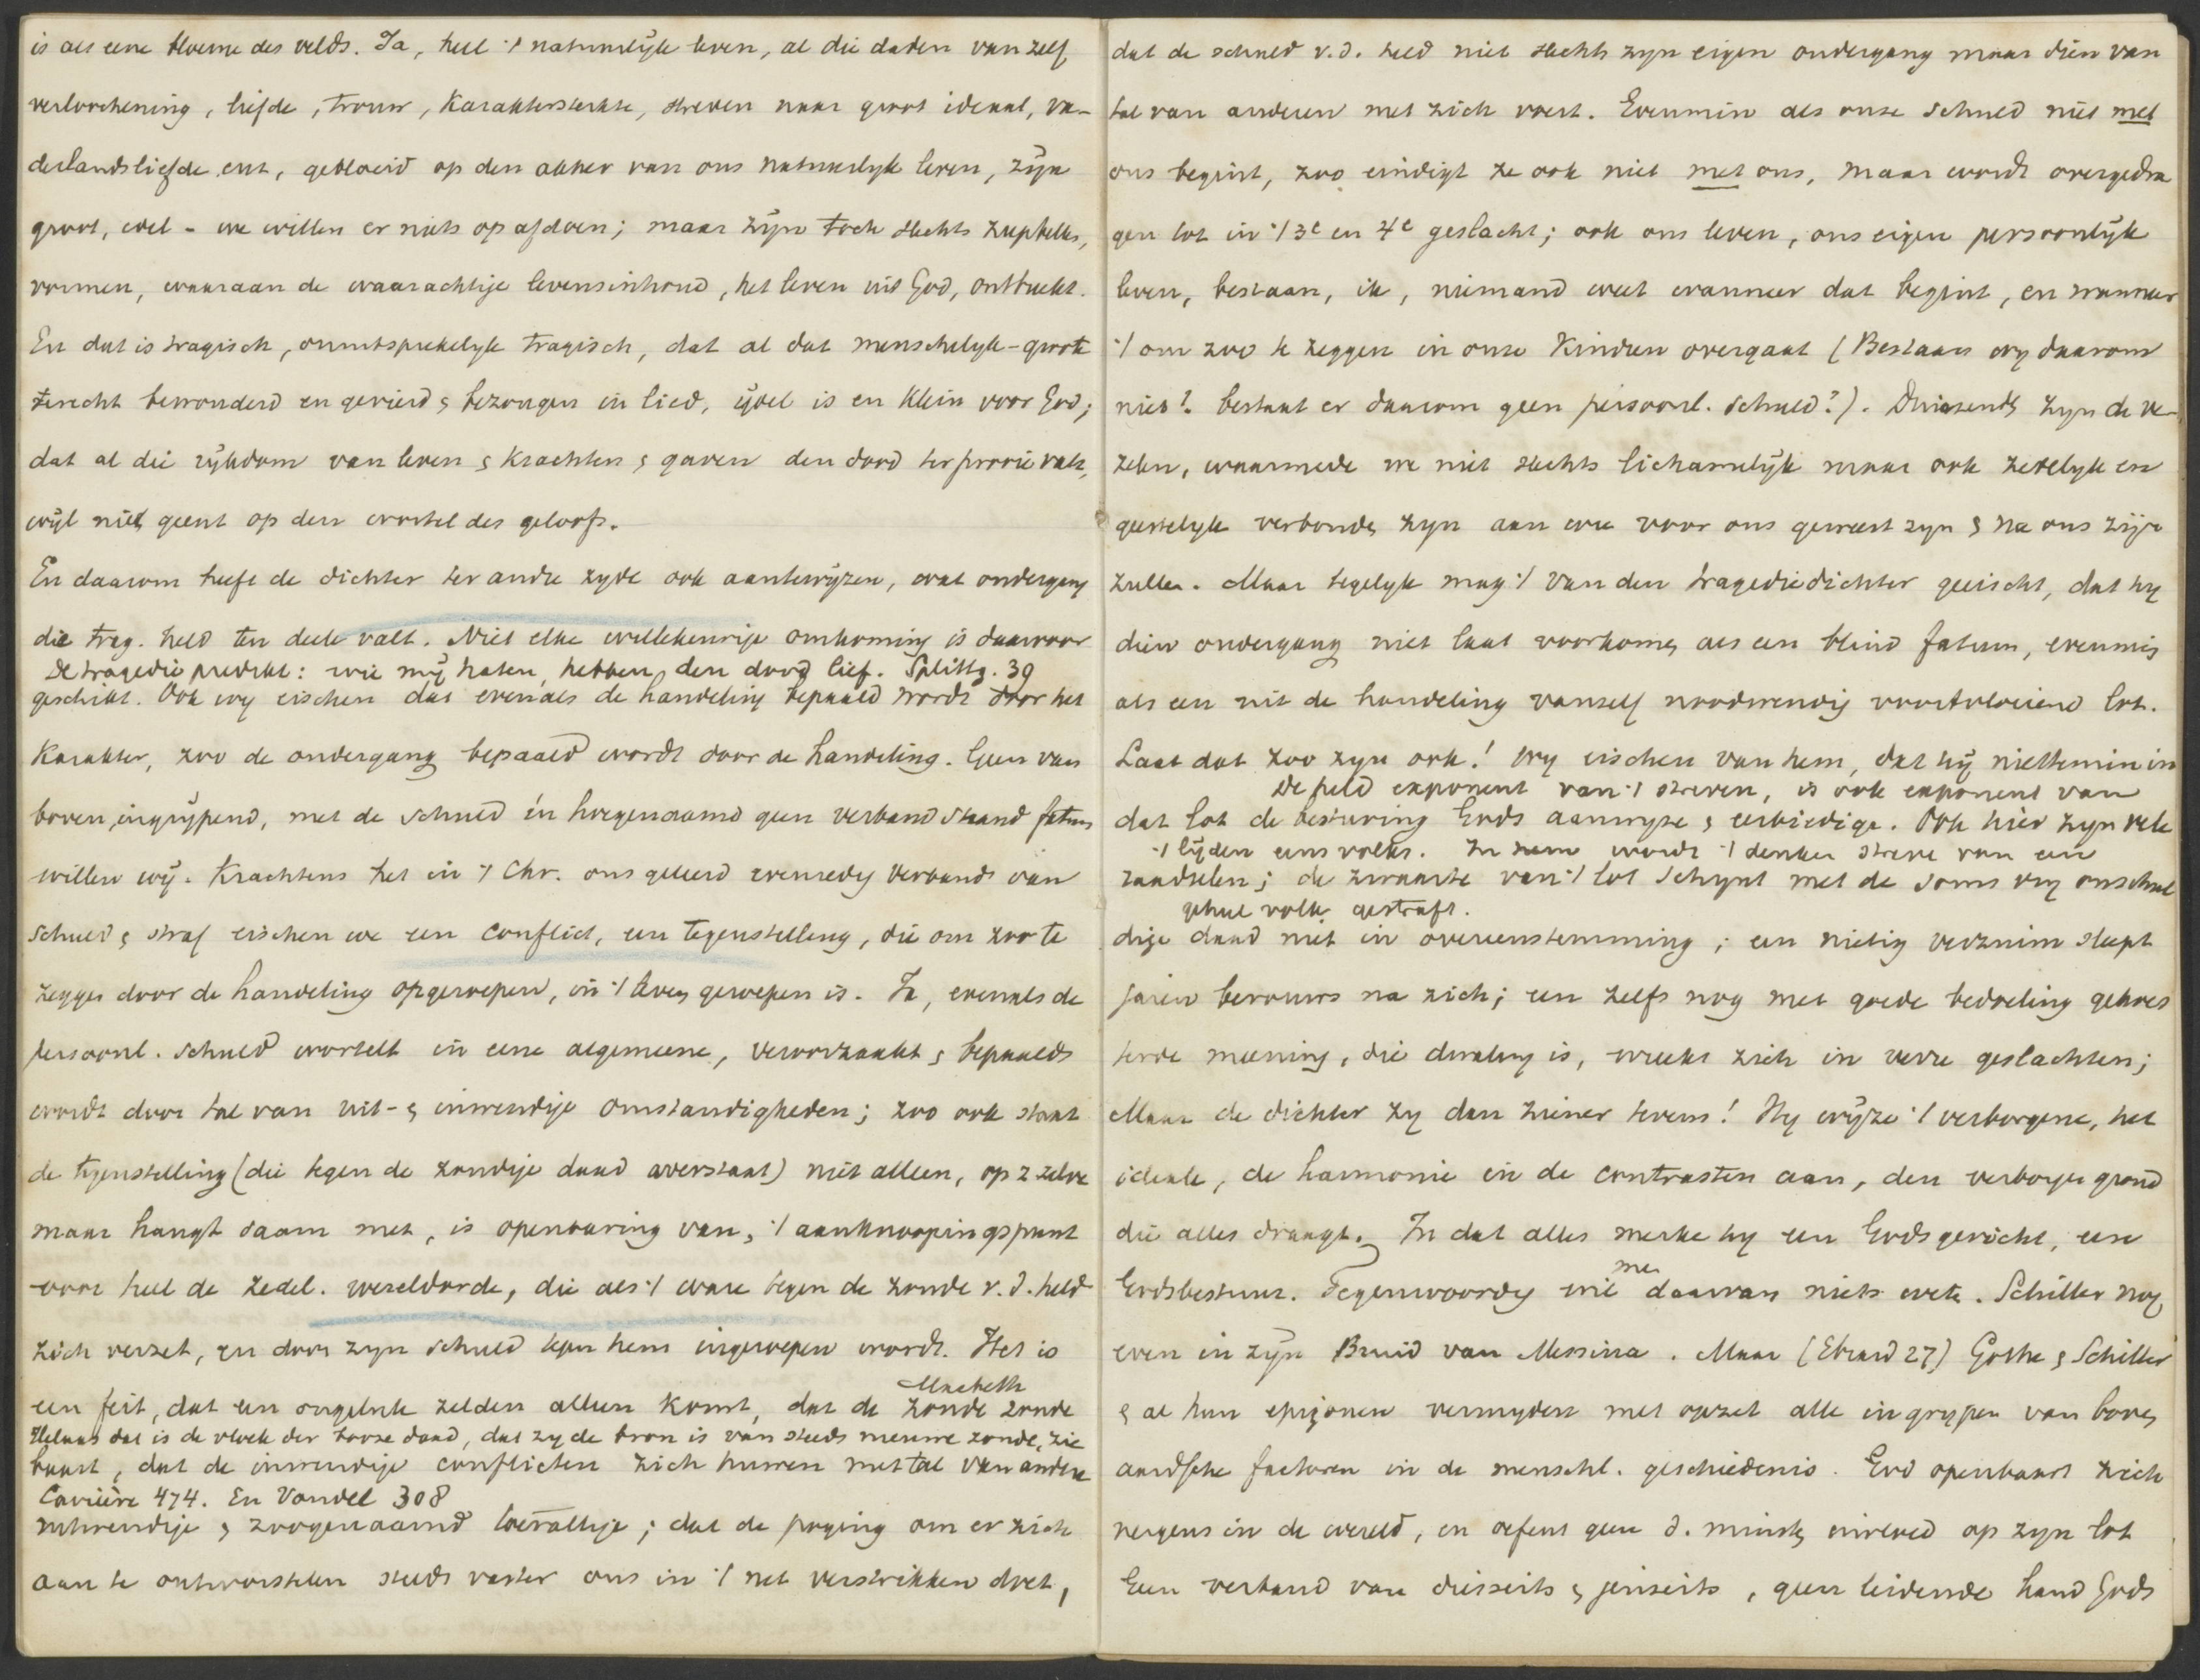 is als eene bloeme des velds. Ja, heel 't natuurlijk leven, al die daden van zelf
verloochening, liefde, trouw, karaktersterkte, streven naar groot ideaal, va-
derlandsliefde enz, gebloeid op den akker van ons natuurlyk leven, zijn
groot, edel - we willen er niets op afdoen; maar zijn toch slechts
vormen, waaraan de waarachtige levensinhoud, het leven uit God, ontbreekt.
En dat is tragisch, onuitsprekelyk tragisch, dat al dat menschelyk-groote
terecht bewonderd en gevierd & bezongen in lied, ijdel is en klein voor God;
dat al die rijkdom van leven & krachten & gaven den dood ter prooi valt,
wijl niet geent op den wortel des geloofs.
En daarom heeft de dichter ter andre zyde ook aantewijzen, wat ondergang
die trag. held ten deele valt. Niet elke willekeurige omkoming is daarvoor
De tragedie predikt: wie mij haten, hebben den dood lief. Splittg. 39
geschikt. Ook wy eischen dat evenals de handeling bepaald wordt door het
Karakter, zoo de ondergang bepaald wordt door de handeling. Geen van
boven ingrijpend, met de schuld in hoegenaamd geen verband staand fatum
willen wij. Krachtens het in 't Chr. ons geleerd evenredig verband van
schuld & straf eischen we een conflict, een tegenstelling, die om zoo te
zeggen door de handeling opgeroepen, in 't leven geroepen is. Ja, evenals de
persoonl. schuld wortelt in eene algemeene, veroorzaakt & bepaald
wordt door tal van uit- & inwendige omstandigheden; zoo ook staat
de tegenstelling (die tegen de zondige daad overstaat) niet alleen, op z zelve
maar hangt saam met, is openbaring van, 't aanknoopingspunt
voor heel de zedel. wereldorde, die als 't ware tegen de zonde v. d. held
zich verzet, en door zyn schuld tegen hem ingeroepen wordt. Het is
Macbeth
een feit, dat een ongeluk zelden alleen komt, dat de zonde zonde
Helaas dat is de vloek der booze daad, dat zy de bron is van steeds nieuwe zonde, zie
baart, dat de inwendige conflicten zich huwen met tal van andere
Carrière 474. En Vondel 308
uitwendige & zoogenaamd toevallige; dat de poging om er zich
aan te ontworstelen steeds vaster ons in 't net verstrikken doet,
dat de schuld v. d. held niet slechts zyn eigen ondergang maar dien van
tal van anderen met zich voert. Evenmin als onze schuld niet met
ons begint, zoo eindigt ze ook niet met ons, maar wordt overgedra
gen tot in 't 3e en 4e geslacht; ook ons leven, ons eigen persoonlijk
leven, bestaan, ik, niemand weet wanneer dat begint, en wanneer
't om zoo te zeggen in onze kinderen overgaat (Bestaan wy daarom
niet? bestaat er daarom geen persoonl. schuld?). Duizende zyn de ve-
zelen, waarmede we niet slechts lichamelijk maar ook zedelyk en
geestelyk verbonden zyn aan wie voor ons geweest zyn & na ons zijn
zullen. Maar tegelyk mag 't van den tragediedichter geëischt, dat hy
dien ondergang niet laat voorkomen als een blind fatum, evenmin
als een uit de handeling vanzelf noodwendig voortvloeiend lot.
Laat dat zoo zyn ook! Wy eischen van hem, dat hij niettemin in
De held exponent van 't streven, is ook exponent van
dat lot de besturing Gods aanwyze & eerbiedige. Ook hier zyn vele
't lijden eens volks. In hem wordt 't denken streve van een
raadselen; de zwaarte van 't lot schynt met de soms vry onschul
geheel volk gestraft.
dige daad niet in overeenstemming; een nietig verzuim sleept
jaren berouws na zich; een zelfs nog met goede bedoeling gekoes
terde meening, die dwaling is, wreekt zich in verre geslachten;
Maar de dichter zy dan ziener tevens! Hy wijze 't verborgene, het
ideale, de harmonie in de contrasten aan, den verborgen grond
die alles draagt. In dat alles merke hy een Godsgericht, een
Godsbestuur. Tegenwoordig wil men daarvan niets weten. Schiller nog
even in zyn Bruid van Messina. Maar (Ebrard 27) Göthe & Schiller
& al hun epigonen vermyden met opzet alle ingrypen van boven
aardsche factoren in de menschl. geschiedenis. God openbaart zich
nergens in de wereld, en oefent geen d. minste invloed op zyn lot
Geen verband van diesseits & jenseits, geen leidende hand Gods